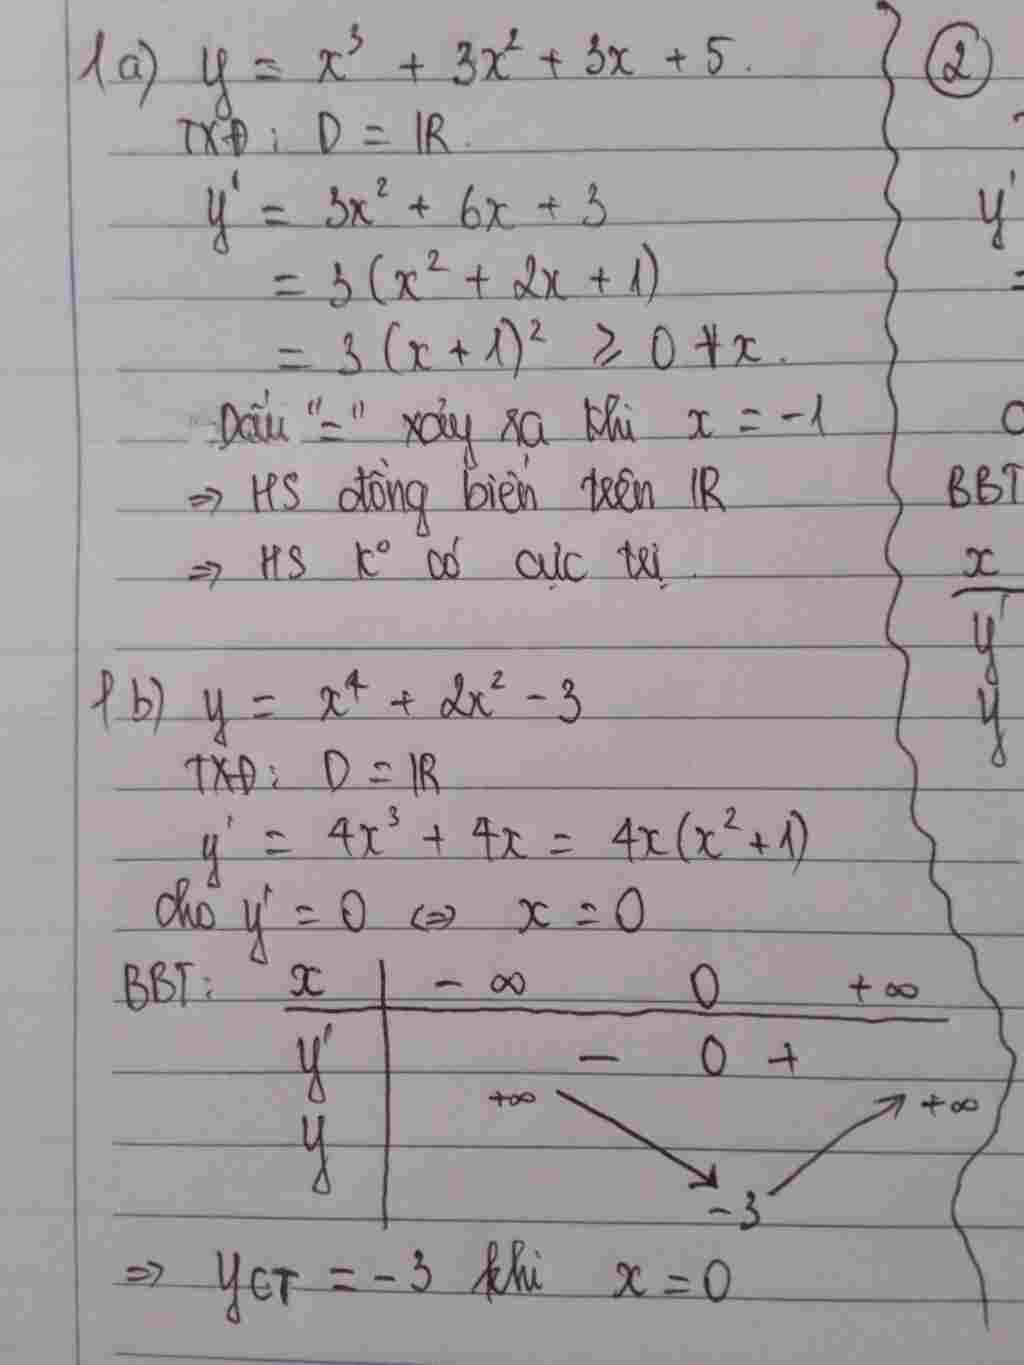 1a) y = x³ + 3x² + 3x + 5.
TXĐ: D = ℝ.
y' = 3x² + 6x + 3
= 3(x² + 2x + 1)
= 3(x + 1)² ≥ 0 ∀x.
Dấu "=" xảy ra khi x = -1
⇒ HS đồng biến trên ℝ
⇒ HS k° có cực trị.
1b) y = x⁴ + 2x² - 3
TXĐ: D = ℝ
y' = 4x³ + 4x = 4x(x² + 1)
cho y' = 0 ⇔ x = 0
BBT: x - ∞ 0 + ∞
y' - 0 +
y +∞ ↘ -3 ↗ +∞
⇒ yCT = -3 khi x = 0
②
y'
=
BBT
x
y'
y